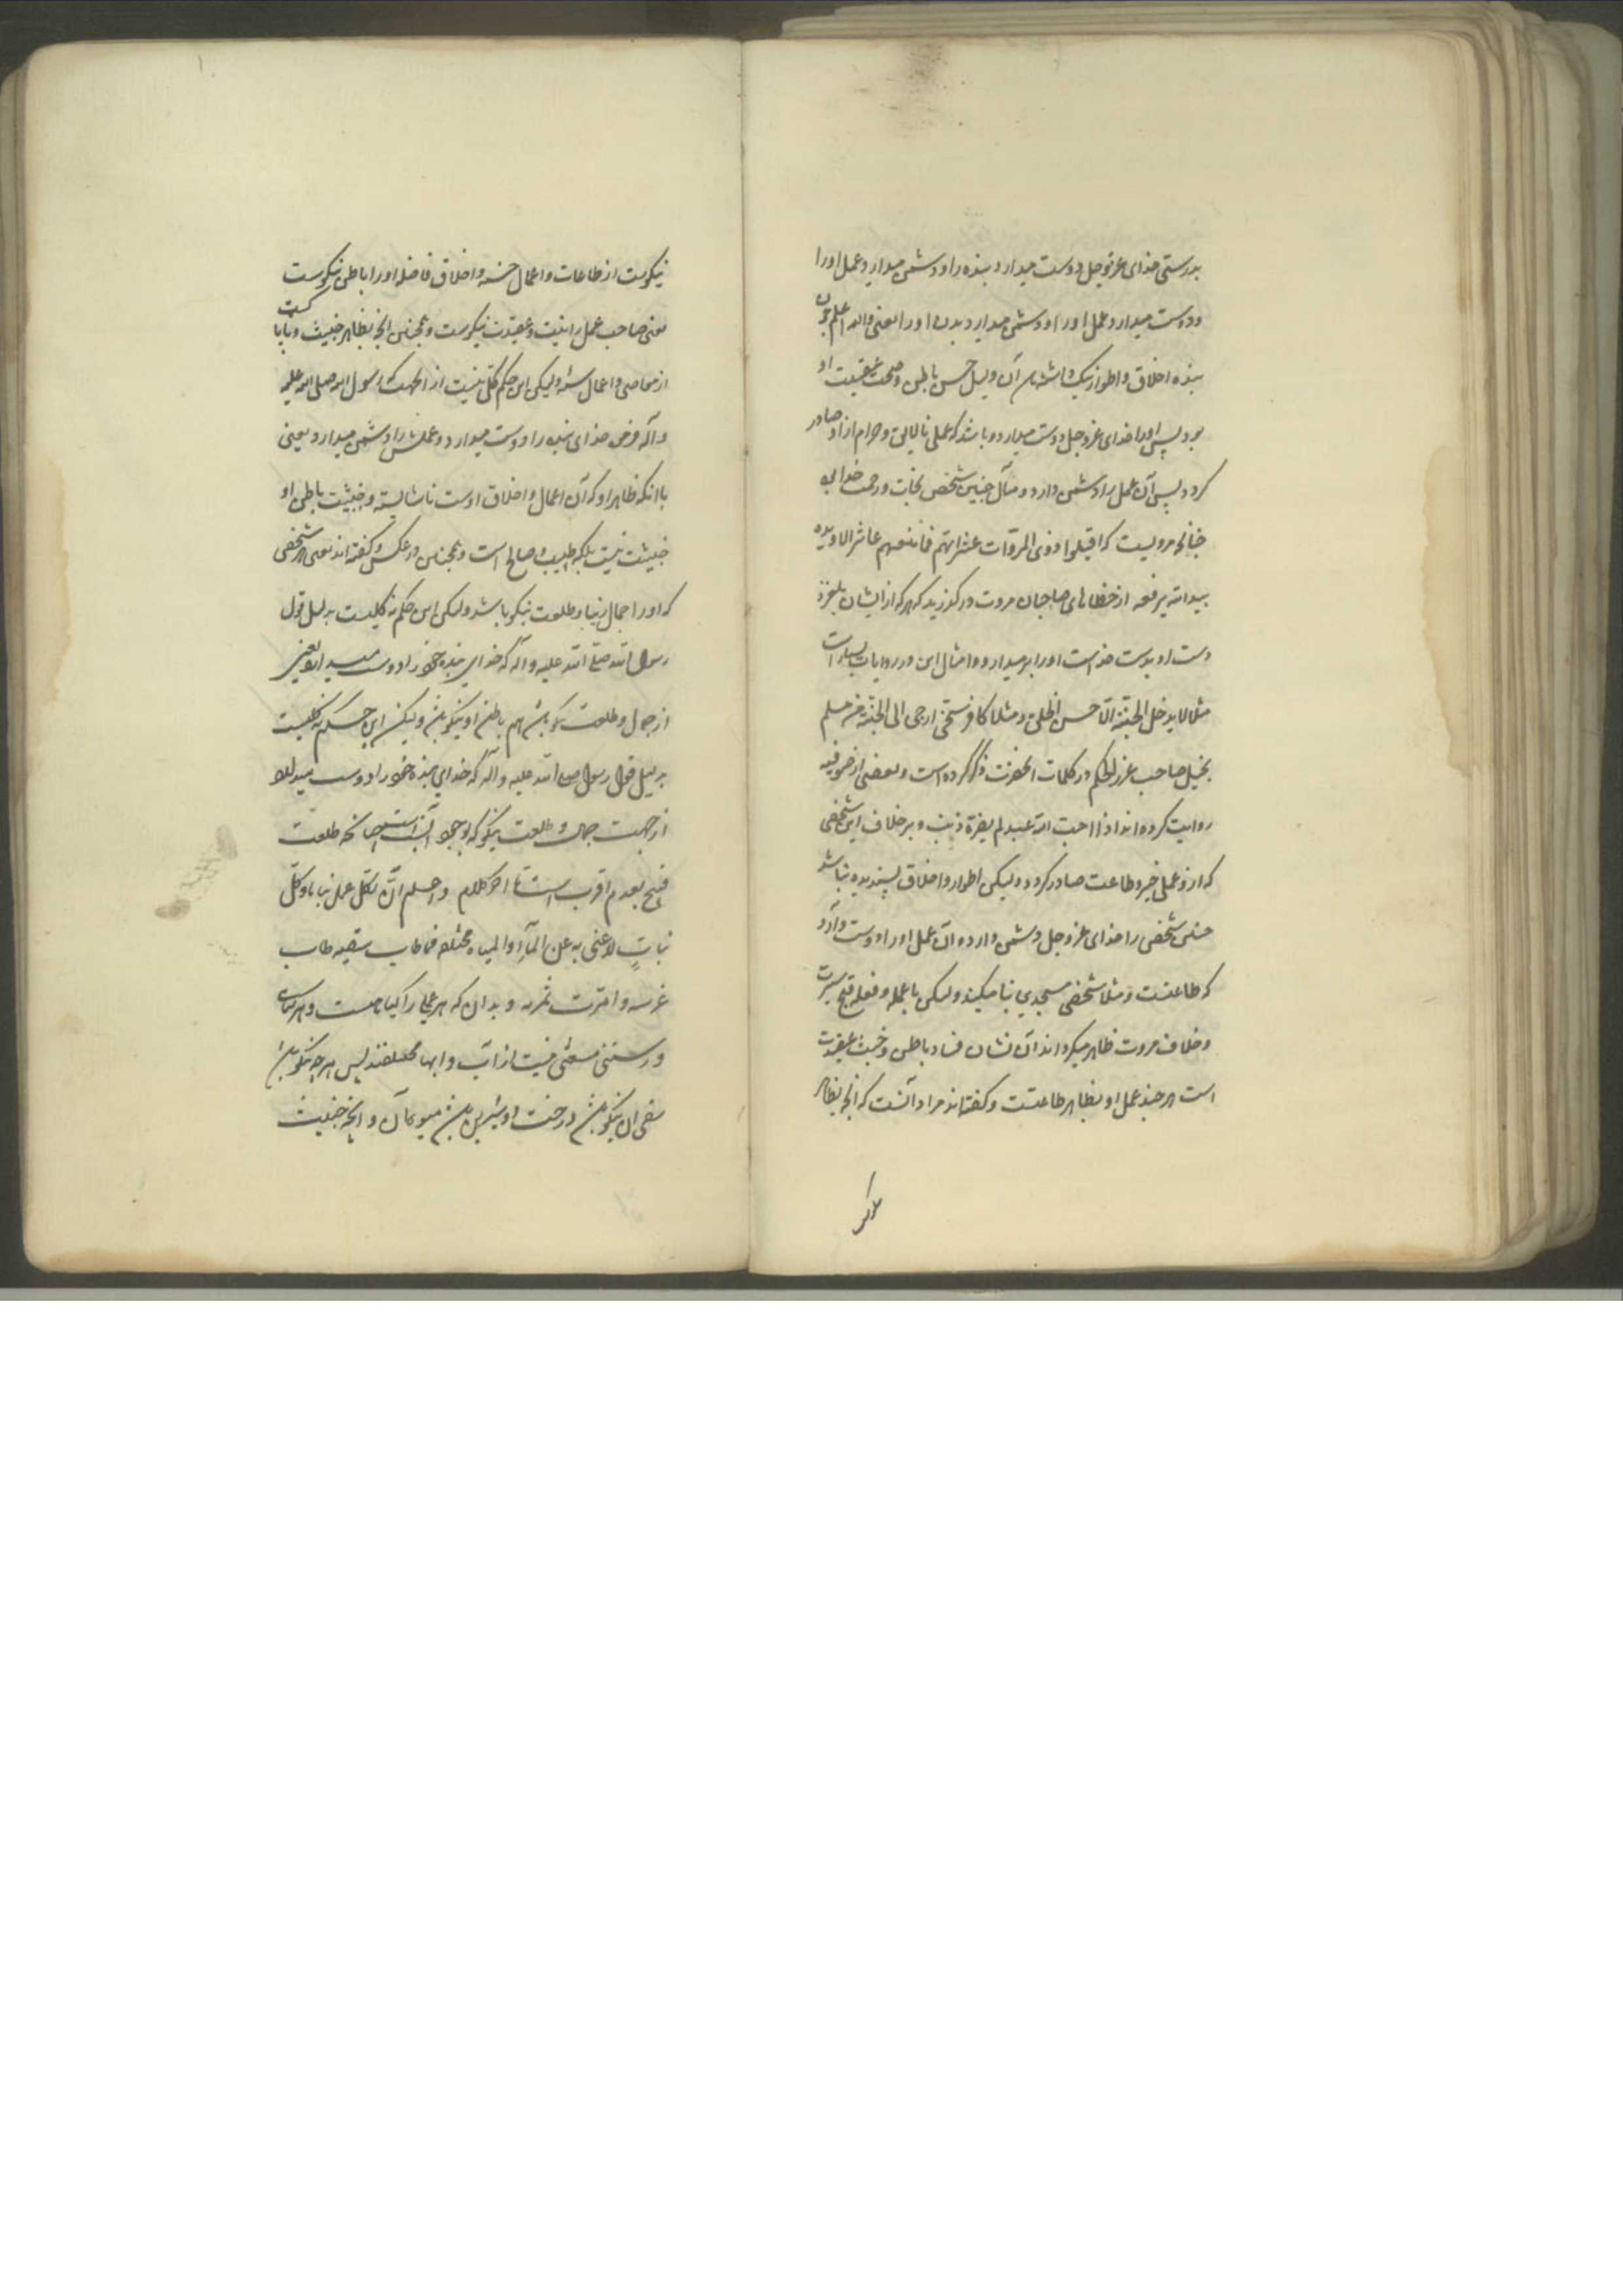 بدرستی خدای عزوجل دوست میدارد بنده را و دشمن میدارد عمل او را
و دوست میدارد عمل او را و دشمن میدارد بدن او را یعنی والله اعلم چون
بنده اخلاق و اطوار نیک داشته باشد آن دلیل حسن باطن و صحت عقیدت او
بود پس او را خدای عزوجل دوست میدارد و باشد که عملی نالایق و حرام از او صادر
کردد پس آن عمل را دشمن دارد و مآل چنین شخص نجات و رحمت خدا بود
چنانچه مرویست که اقیلوا ذوی المروّات عثراتهم فما یعثر منهم عاثر الا و یده
بید الله یرفعه از خطاهای صاحبان مروت درکذرید که هر که از ایشان بلغزد
دست او بدست خداست او را بر میدارد و امثال این در روایات بسیار است
مثلا لا یدخل الجنّة الّا حسن الخلق و مثلا کافر سخیّ ارجی الی الجنّة من مسلم
بخیل صاحب غرر الحکم در کلمات انحضرت ذکر کرده است و بعضی از صوفیه
روایت کرده اند اذا احبّ الله عبدا لم یضرّه ذنب و بر خلاف این شخصی
که از او عمل خیر و طاعت صادر کردد ولیکن اطوار و اخلاق پسندیده نباشد
چنین شخصی را خدای عزوجل دشمن دارد و آن عمل او را دوست دارد
که طاعتست و مثلا شخصی مسجدی بنا میکند ولیکن با عمله و فعله قبح سیرت
و خلاف مروت ظاهر میکرداند آن نشان فساد باطن و خبث عقیدت
است هر چند عمل او بظاهر طاعتست و کفته اند مراد آنست که آنچه بظاهر
نیکوست از طاعات و اعمال حسنه و اخلاق فاضله او را باطن نیکوست
یعنی صاحب عمل را نیت و عقیدت نیکوست و همچنین آنچه بظاهر خبیث و ناپاکست
از معاصی و اعمال سیئه ولیکن این حکم کلی نیست از انجهت که رسول الله صلی الله علیه
و آله فرمود خدای بنده را دوست میدارد و عملش را دشمن میدارد یعنی
با آنکه ظاهر او که آن اعمال و اخلاق اوست ناشایسته و خبیثست باطن او
خبیث نیست بلکه طیب و صالح است و همچنین در عکس و کفته اند یعنی هر شخصی
که او را جمال زیبا و طلعت نیکو باشد ولیکن این حکم نه کلیست به دلیل قول
رسول الله صلی الله علیه و آله که خدای بنده خود را دوست میدارد یعنی
از جمال و طلعت نیکو باشد هم باطن او نیکو باشد ولیکن این حکم نه کلیست
بدلیل قول رسول صلی الله علیه و آله که خدای بنده خود را دوست میدارد
از جهت جمال و طلعت نیکو که بوجود انسب است چنانکه طلعت
قبیح بعدم اقرب است تا اخر کلام و اعلم انّ لکلّ عمل نباتا و کلّ
نباتٍ لا غنی به عن المآء والمیاه مختلفه فما طاب سقیه طاب
غرسه و امرّت ثمرته و بدان که هر عملی را کیاهیست و هر کیاهی
و رستنی مستغنی نیست از آب و ابها مختلفند پس هر چه نیکو باشد
سقی ان نیکو باشد درخت او و شیرین باشد میوه آن و آنچه خبیثست